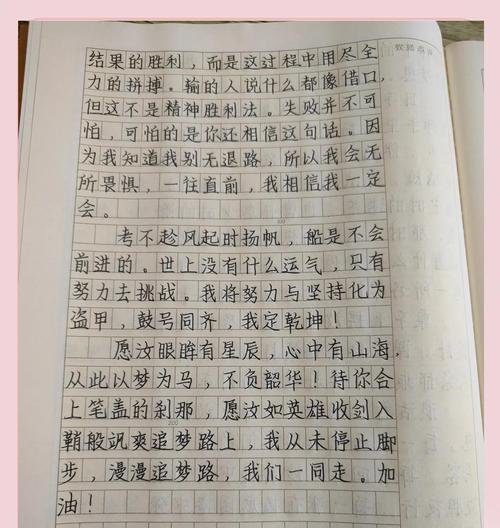 教师点评
结果的胜利，而是这过程中用尽全
力的拼搏。输的人说什么都像借口，
但这不是精神胜利法。失败并不可
怕，可怕的是你还相信这句话。因
为我知道我别无退路，所以我会无
所畏惧，一往直前，我相信我一定
会。
考不趁风起时扬帆，船是不会
前进的。世上没有什么运气，只有
努力去挑战。我将努力与坚持化为
盔甲，鼓号同齐，我定乾坤！
愿汝眼眸有星辰，心中有山海，
从此以梦为马，不负韶华！待你合
上笔盖的刹那，愿汝如英雄收剑入
200
鞘般飒爽追梦路上，我从未停止脚
步，漫漫追梦路，我们一同走。加
油！